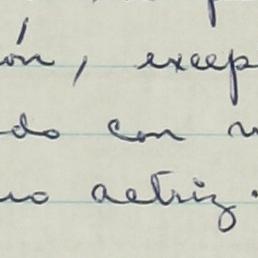 ón, excep
do con
no actriz.